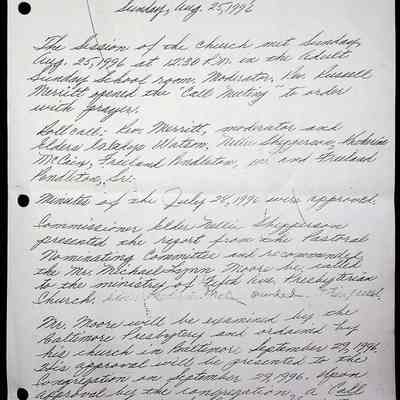 Sunday, Aug. 25, 1996
The Session of the church met Sunday,
Aug. 25, 1996 at 12:20 P.M. in the Adult
Sunday School room. Moderator, Rev. Russell
Merritt opened the "Call Meeting" to order
with prayer.
Roll call: Rev. Merritt, moderator and
Elders Gladys Watson, Nellie Shipperson,
McCain, Freeland Pendleton, and Freeland
Pendleton, Sr.
Minutes of the July 28, 1996 were approved.
Commissioner Elder Nellie Shipperson
presented the report from the Pastoral
Nominating Committee and recommended
the Mr. Michael Lynn Moore be called
to the ministry of Fifth Ave. Presbyterian
Church.
Mr. Moore will be examined by the
Baltimore Presbytery and ordained by
his church in Baltimore, September 29, 1996.
His approval will be presented to the
Congregation on September 29, 1996. Upon
approval by the congregation, a Call